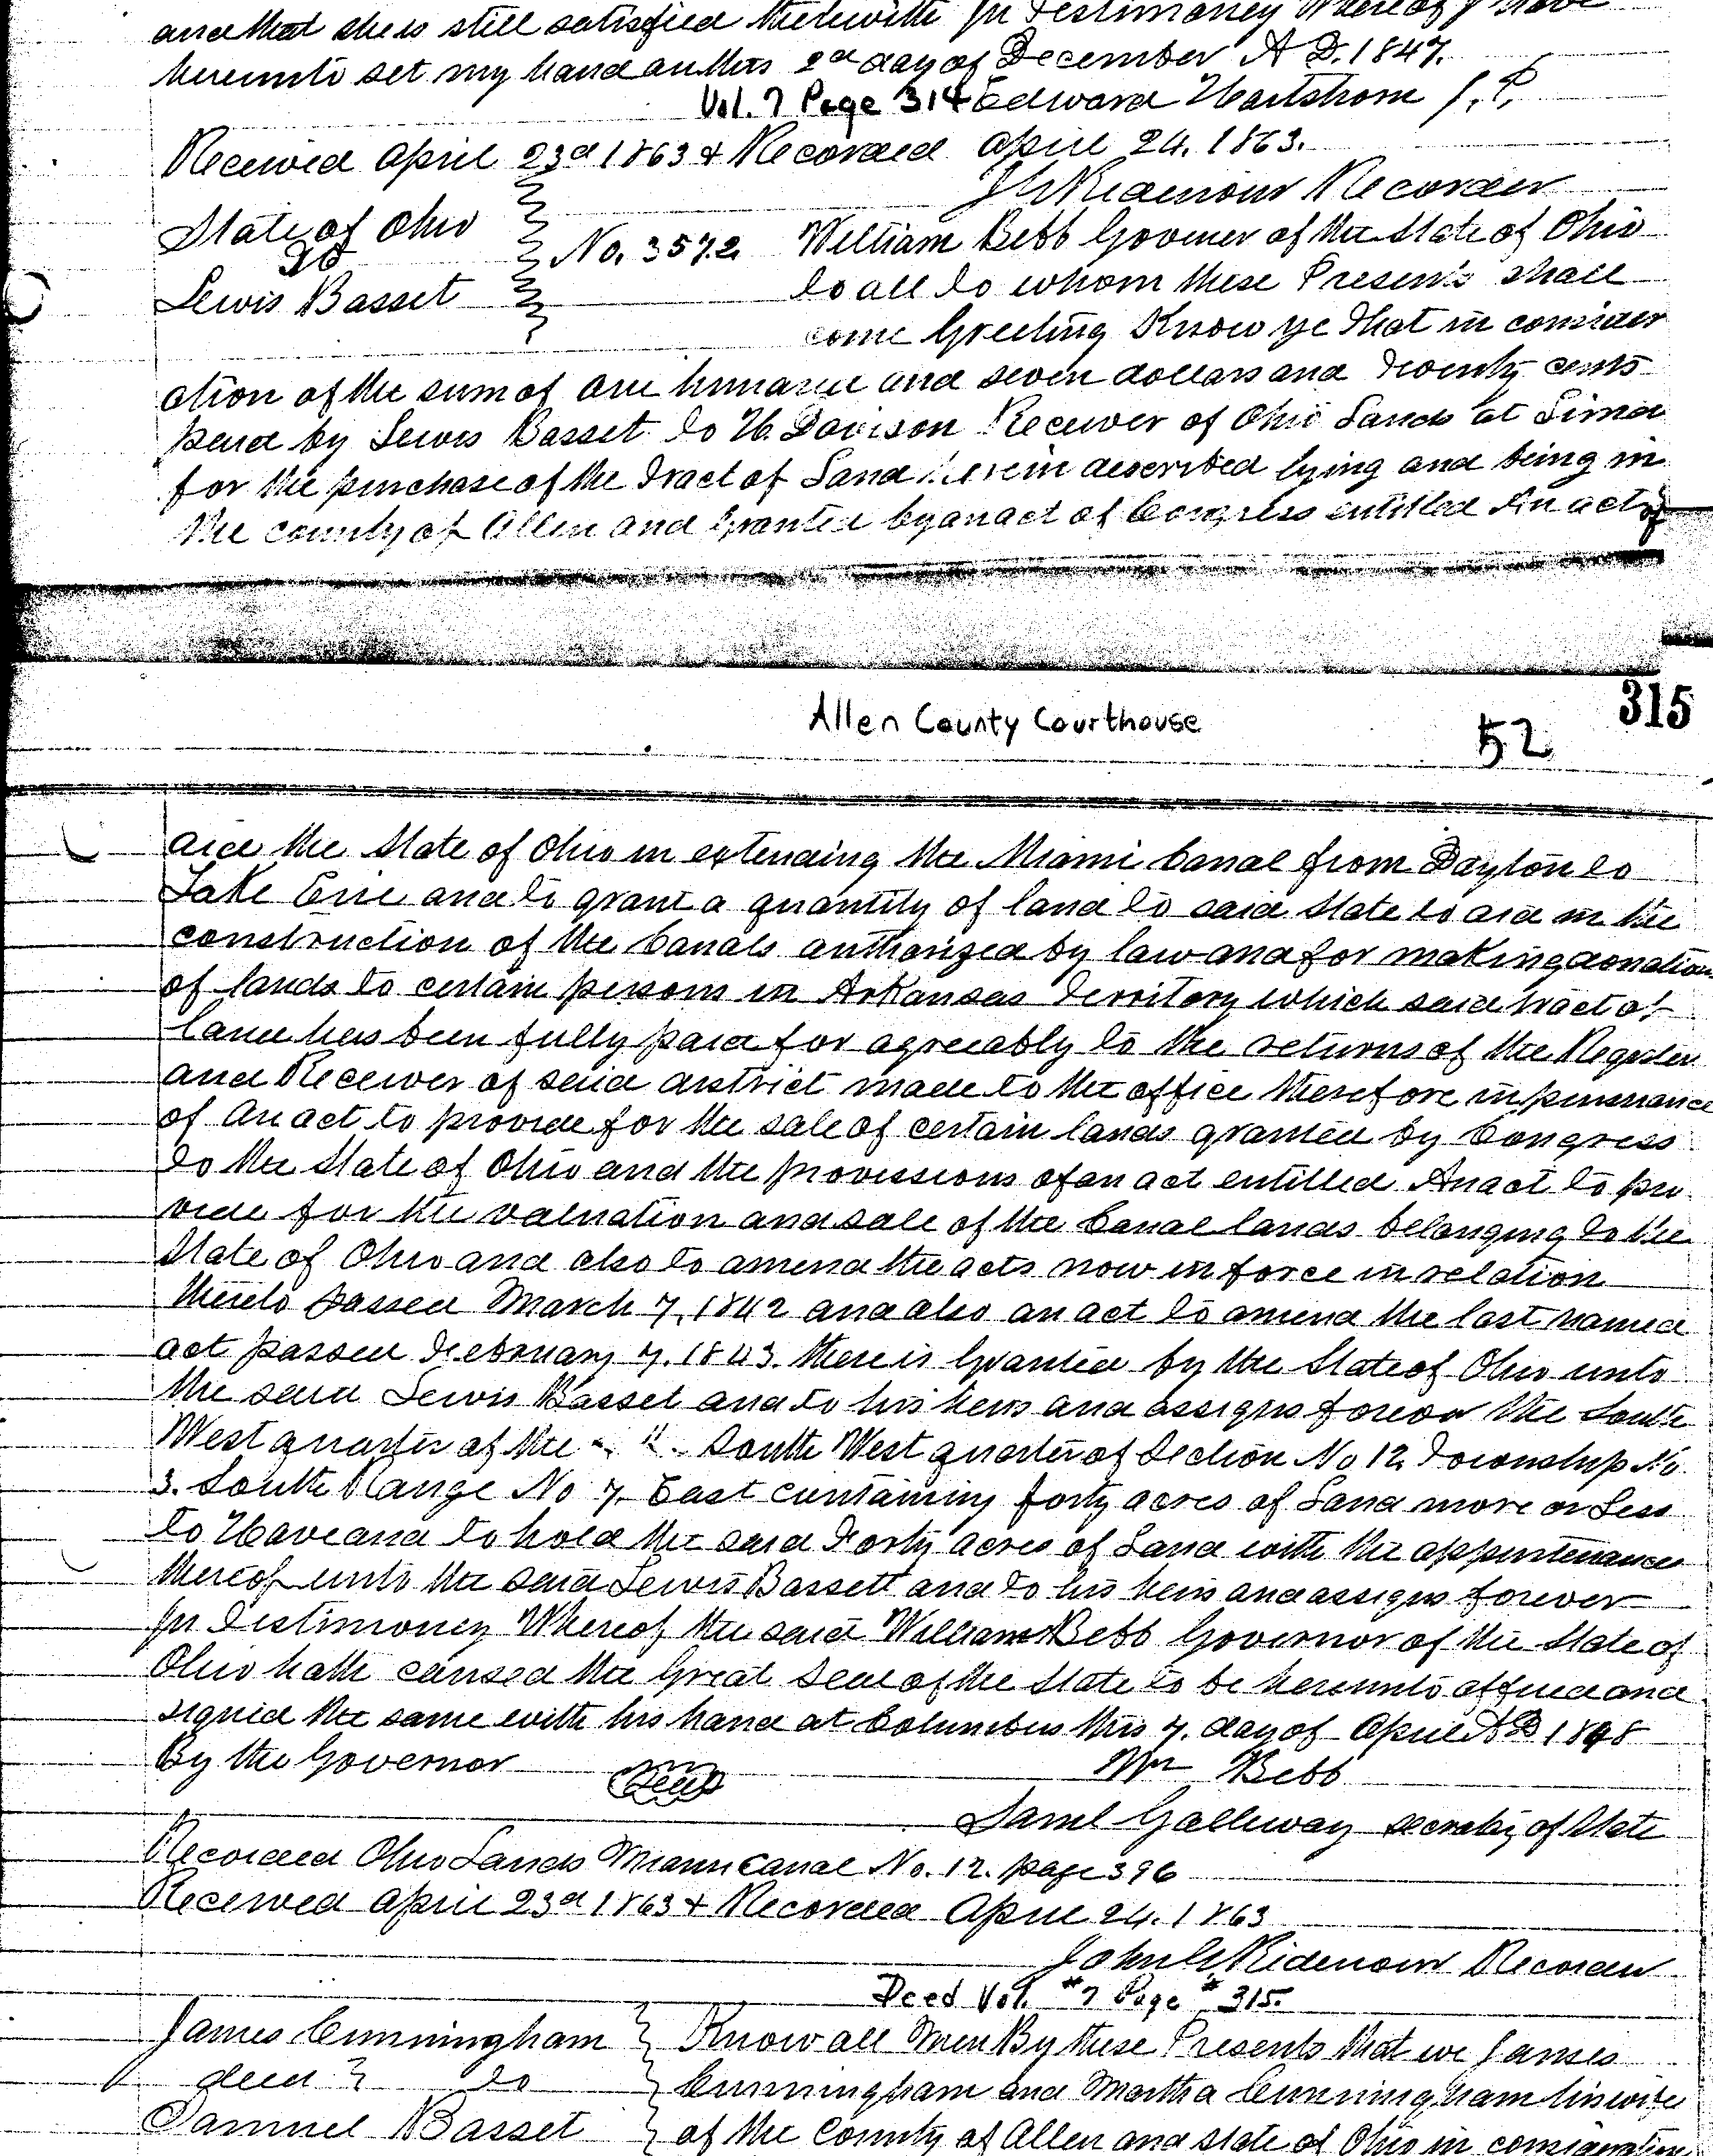 and that she is still satisfied therewith In Testimoney Whereof I have
hereunto set my hand an this 2d day of December A D. 1847.
Vol. 7 Page 314 Edward Hartshorn J. P.
Received April 23d 1863 & Recorded April 24. 1863.
Ridenour Recorder
State of Ohio
To No. 3572. William Bebb Govener of the State of Ohio
to all to whom these Presents shall
Lewis Basset
come Greeting Know ye That in consider
ation of the sum of one hundred and seven dollars and Twenty cents
paid by Lewis Basset to H. Davison Receiver of Ohio Lands at Lima
for the purchase of the Tract of Land herein described lying and being in
the county of Allen and Granted by an act of Congress entitled An act to
315
Allen County Courthouse
52
aice the State of Ohio in extending the Miami Canal from Dayton to
Lake Erie and to grant a quantity of land to said State to aid in the
construction of the Canals authorized by law and for making donations
of lands to certain persons in Arkansas Territory which said tract of
land has been fully paid for agreeably to the returns of the Register
and Receiver of said district made to the office therefore in pursuance
of An act to provide for the sale of certain lands granted by Congress
to the State of Ohio and the provissions of an act entitled An act to pro
vide for the valuation and sale of the Canal lands belonging to the
State of Ohio and also to amend the acts now in force in relation
thereto passed March 7, 1842 and also an act to amend the last named
act passed February 7. 1843. there is Granted by the State of Ohio unto
the said Lewis Basset and to his heirs and assigns forever the South
West quarter of the South West quarter of Section No 12. Township No.
3. South Range No 7. East containing forty acres of Land more or Less
To Have and to hold the said Forty acres of Land with the appurtenances
thereof unto the said Lewis Bassett and to his heirs and assigns forever
In Testimoney Whereof the said William Bebb Governor of the State of
Ohio hath caused the Great Seal of the State to be hereunto affixed and
signed the same with his hand at Columbus this 7. day of April A D 1848
By the Governor Seal Wm Bebb
Saml Galloway secratey of State
Recorded Ohio Lands Miami Canal No. 12. page 396
Received April 23d 1863 & Recorded April 24. 1863
John Ridenour Recorder
Deed Vol. #7 Page #315.
James Cunningham Know all Men By these Presents that we James
deed to Cunningham and Martha Cunningham his wife
Samuel Basset of the County of Allen and state of Ohio in consideration